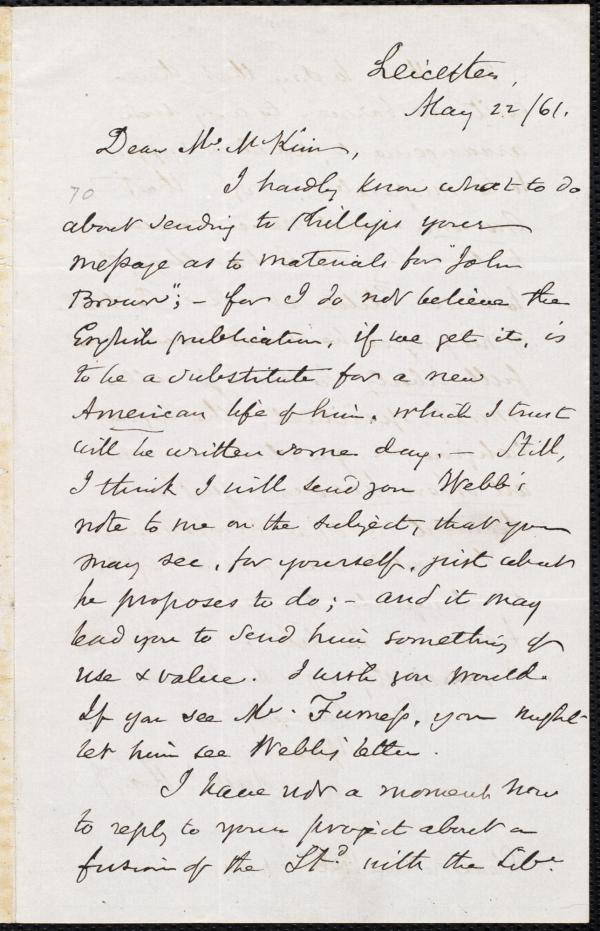 Leicester,
May 22/61.
Dear Mr. McKim,
70
I hardly know what to do
about sending to Phillips your
message as to materials for "John
Brown"; - for I do not believe the
English publication, if we get it, is
to be a substitute for a new
American life of him, which I trust
will be written some day. - Still,
I think I will send you Webb's
note to me on the subject, that you
may see, for yourself, just what
he proposes to do; - and it may
lead you to send him something of
use & value. I wish you would.
If you see Mr. Furness, you might
let him see Webb's letter.
I have not a moment now
to reply to your project about a
fusion of the Std. with the Libr.